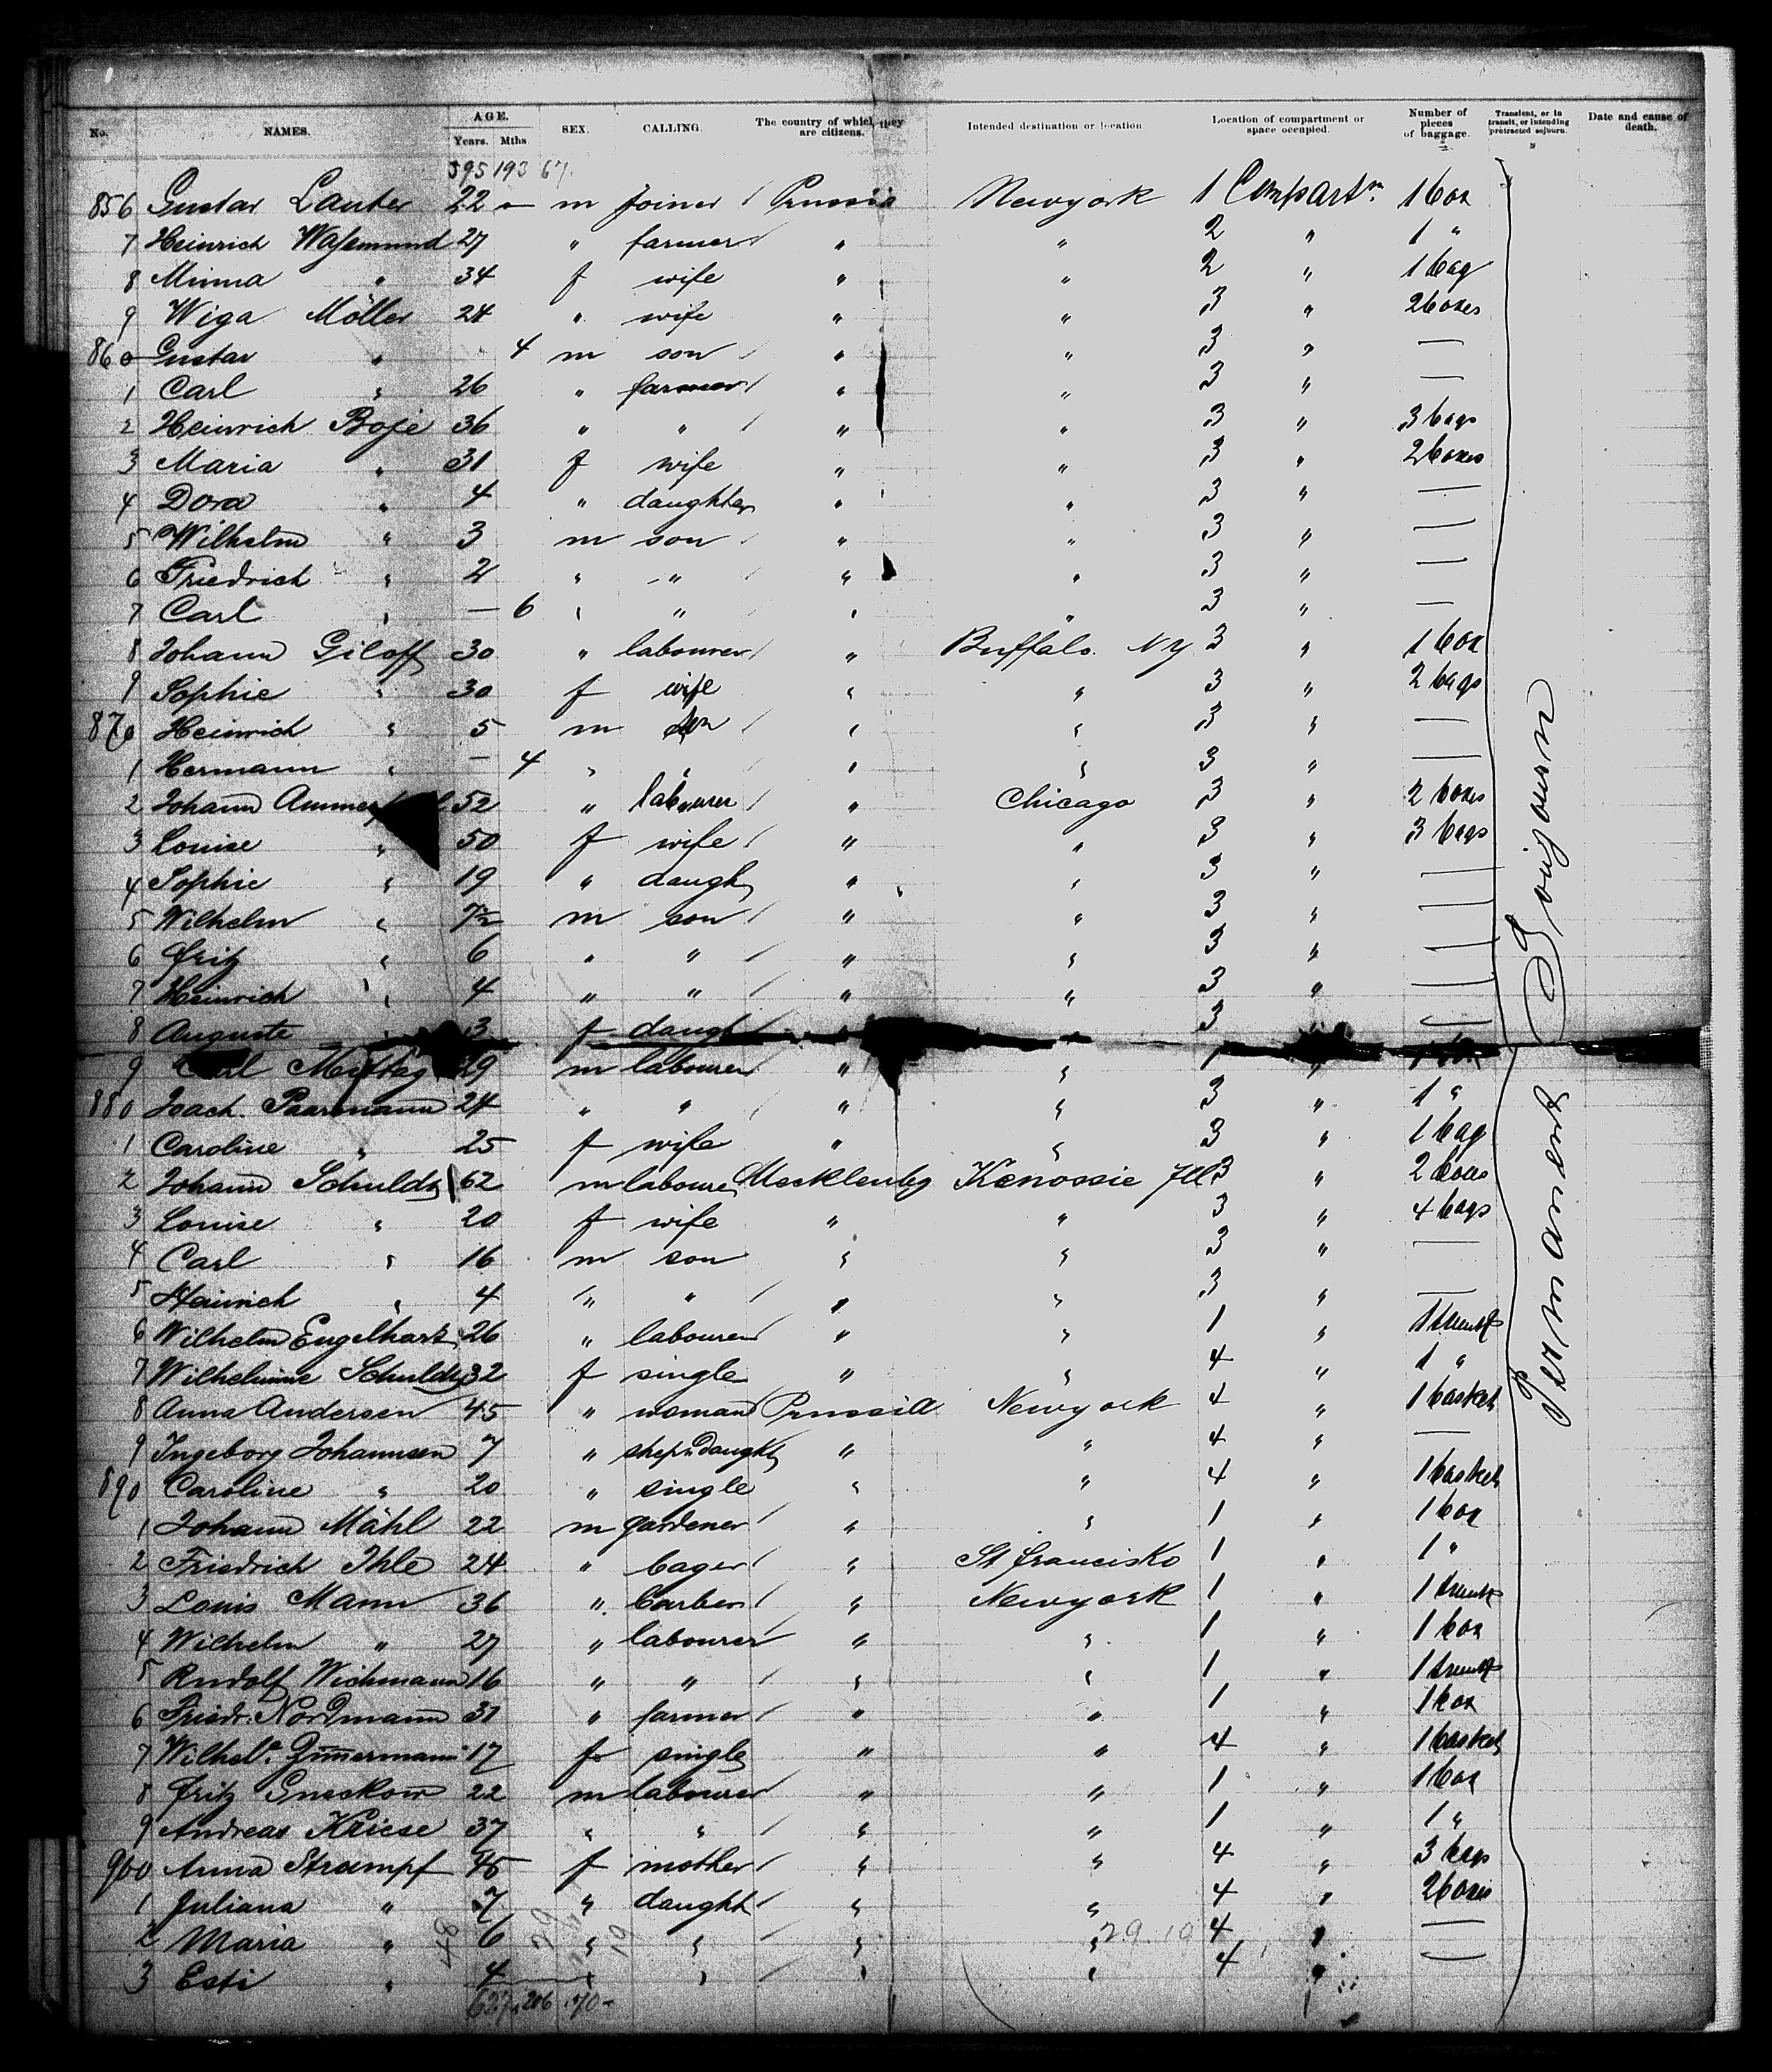 No. NAMES. AGE. Years. Mths SEX. CALLING. The country of which they are citizens. Intended destination or location Location of compartment or space occupied. Number of pieces of baggage. Transient, or in transit, or intending protracted sojourn. Date and cause of death.
595 193 67.
856 Gustav Lauter 22 — m joiner Prussia Newyork 1 Compartm. 1 box
7 Heinrich Wasemund 27 " farmer " " 2 " 1 "
8 Minna " 34 f wife " " 2 " 1 bag
9 Wiga Möller 24 " wife " " 3 " 2 boxes
860 Gustav " 4 m son " " 3 " —
1 Carl " 26 " farmer " " 3 " —
2 Heinrich Boje 36 " " " " 3 " 3 bags
3 Maria " 31 f wife " " 3 " 2 boxes
4 Dora " 4 " daughter " " 3 " —
5 Wilhelm " 3 m son " " 3 " —
6 Friedrich " 2 " " " " 3 " —
7 Carl " — 6 " " " " 3 " —
8 Johann Giloff 30 " labourer " Buffalo. NY 3 " 1 box
9 Sophie " 30 f wife " " 3 " 2 bags
870 Heinrich " 5 m son " " 3 " —
1 Hermann " — 4 " " " " 3 " —
2 Johann 52 " labourer " Chicago 3 " 2 boxes
3 Louise " 50 f wife " " 3 " 3 bags
4 Sophie " 19 " daugh " " 3 " —
5 Wilhelm " 7½ m son " " 3 " —
6 Fritz " 6 " " " " 3 " —
7 Heinrich " 4 " " " " 3 " —
8 Auguste " 3 f daugh 3 —
9 Carl 29 m labourer " " 1 "
880 Joach. Paarmann 24 " " " " 3 " 1 "
1 Caroline " 25 f wife " " 3 " 1 bag
2 Johann Schuldt 62 m labourer Mecklenbg Kenossie Ill 3 " 2 boxes
3 Louise " 20 f wife " " 3 " 4 bags
4 Carl " 16 m son " " 3 " —
5 Heinrich " 4 " " " " 3 " —
6 Wilhelm Engelhart 26 " labourer " " 1 " 1 trunk
7 Wilhelmine Schuldt 32 f single " " 4 " 1 "
8 Anna Andersen 45 " woman Prussia Newyork 4 " 1 basket
9 Ingeborg Johannsen 7 " daught " " 4 " —
890 Caroline " 20 " single " " 4 " 1 basket
1 Johann Mähl 22 m gardener " " 1 " 1 box
2 Friedrich Ihle 24 " " St francisko 1 " 1 "
3 Louis Mann 36 " barber " Newyork 1 " 1 trunk
4 Wilhelm " 27 " labourer " " 1 " 1 box
5 Rudolf Wichmann 16 " " " " 1 " 1 trunk
6 Friedr. Nordmann 31 " farmer " " 1 " 1 box
7 Wilhel.e Zimmermann 17 f single " " 4 " 1 basket
8 Fritz Gneckow 22 m labourer " " 1 " 1 box
9 Andreas Kriese 37 " " " " 1 " 1 "
900 Anna Strumpf 45 f mother " " 4 " 3 bags
1 Juliana " 7 " daught " " 4 " 2 boxes
2 Maria " 6 " " " " 4 " —
3 Esti " 4 " " " " 4
29 19
206 70
Permanent Sojourn